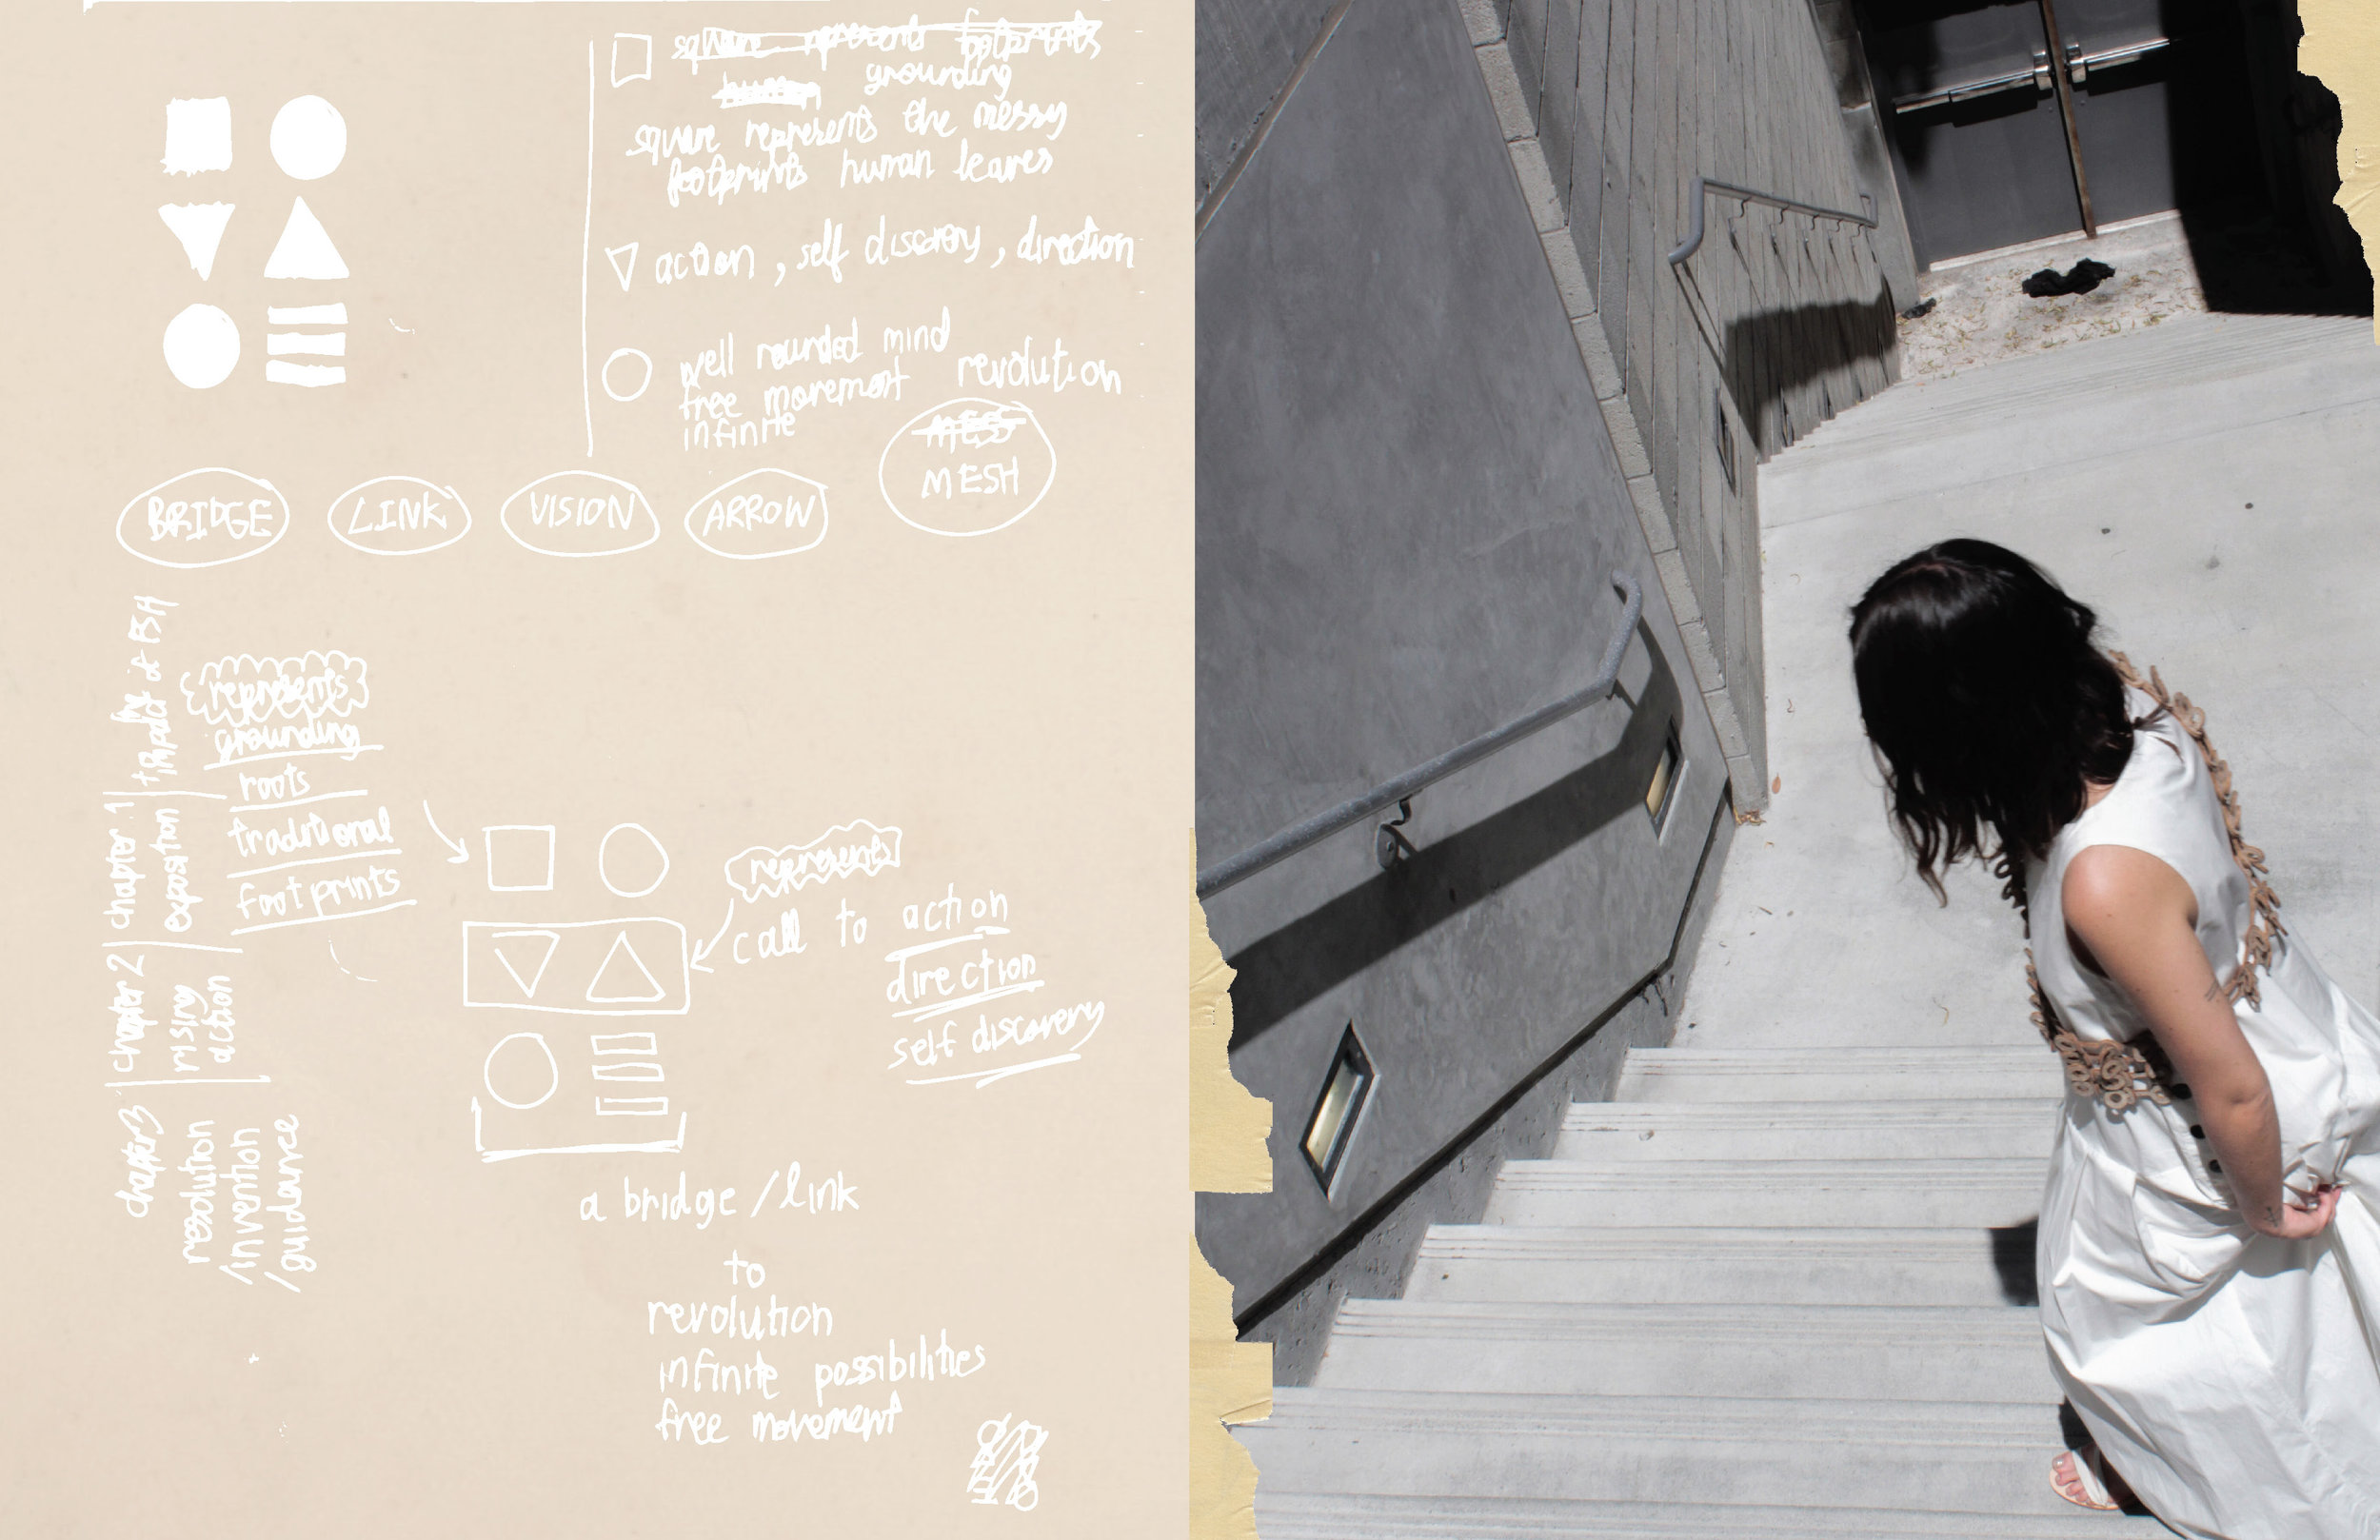 square represents footprints
human grounding
square represents the messy
footprints human leaves
action, self discovery, direction
well rounded mind
free movement revolution
infinite
MESS
MESH
BRIDGE
LINK
VISION
ARROW
chapter 1
exposition
represents
grounding
roots
traditional
footprints
chapter 2
rising
action
represents
call to action
direction
self discovery
chapter 3
resolution
/invention
/guidance
a bridge/link
to
revolution
infinite possibilities
free movement